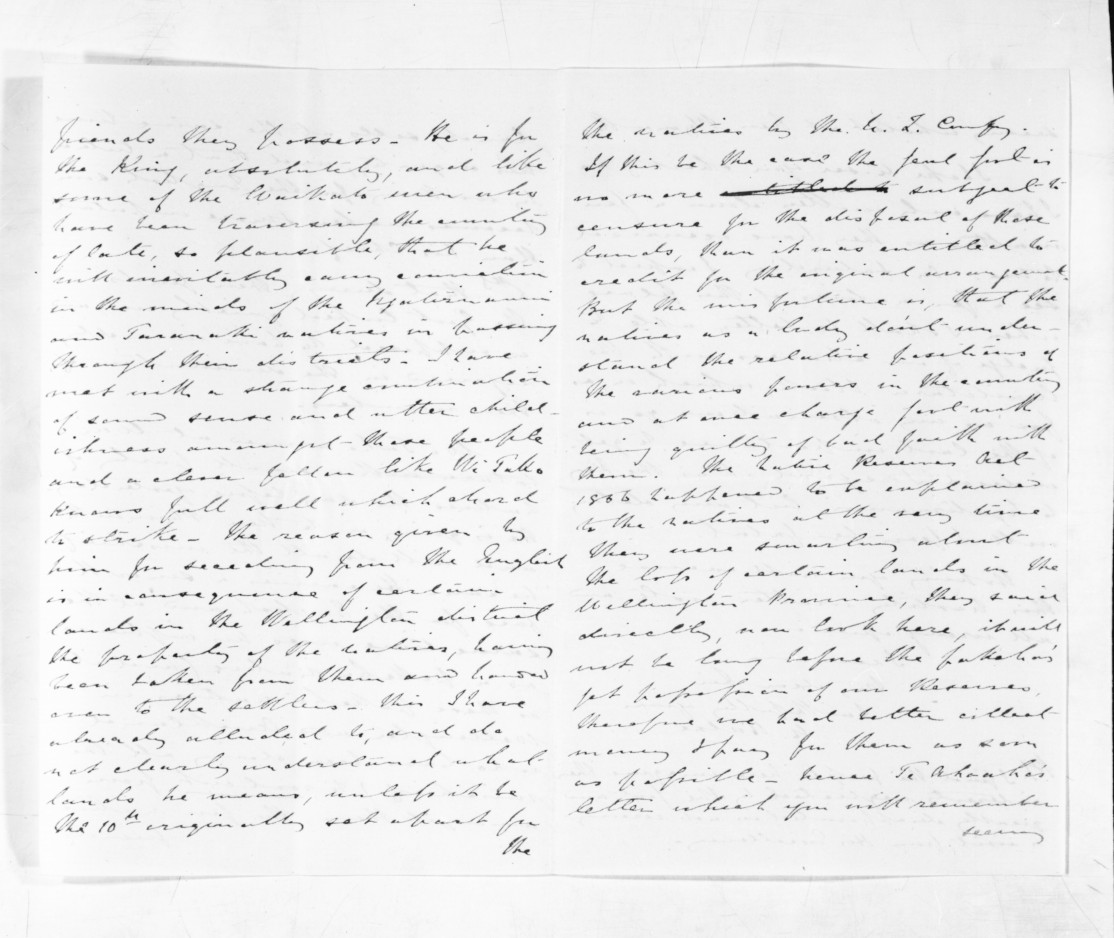 friends they possess - He is for
the King, absolutely, and like
some of the Waikato men who
have been traversing the country
of late, so plausible, that he
will inevitably carry conviction
in the minds of the Ngatiruanui
and Taranaki natives in passing
through their districts - I have
met with a strange combination
of sound sense and utter child-
ishness amongst these people
and a clever fellow like Wi Tako
knows full well which chord
to strike - The reason given by
him for seceding from the English
is in consequence of certain
lands in the Wellington district
the property of the natives, having
been taken from them and handed
over to the settlers - this I have
already alluded to, and do
not clearly understand what
lands he means, unless it be
the 10th originally set apart for
the
the natives by the N. Z. Compy.
If this be the case the prut govt is
no more entitled to subject to
censure for the disposal of those
lands, than it was entitled to
credit for the original arrangement.
But the misfortune is, that the
natives as a body don't under-
stand the relative positions of
the various powers in the country
and at once charge govt with
being guilty of bad faith with
them. The Native Reserves Act
1856 happened to be explained
to the natives at the very time
they were smarting about
the loss of certain lands in the
Wellington Province, they said
directly, now look here, it will
not be long before the pakeha's
get possession of our Reserves,
therefore we had better collect
money & pay for them as soon
as possible - hence Te
letter which you will remember
seeing